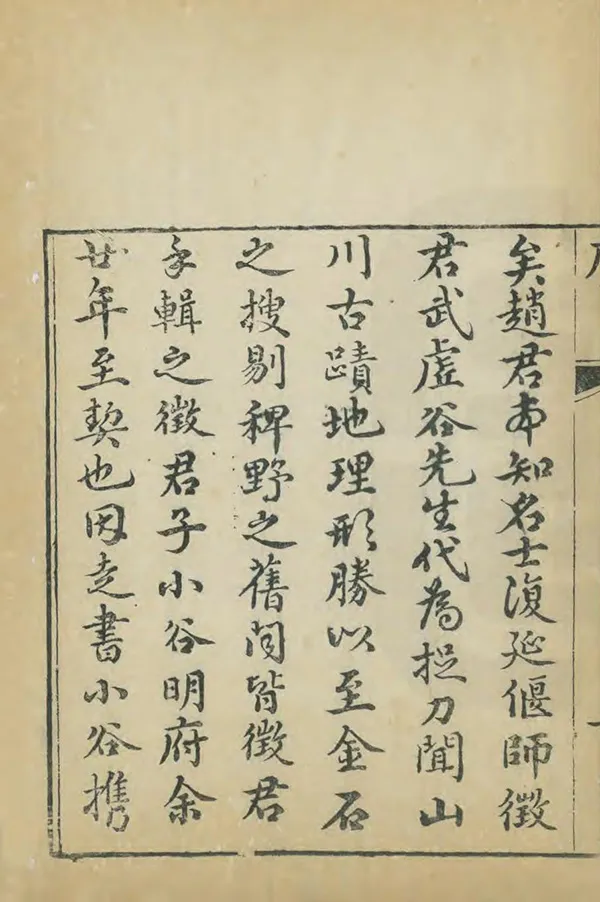 矣趙君本知名士復延偃師徵
君武虛谷先生代為捉刀聞山
川古蹟地理形勝以至金石
之搜剔稗野之舊聞皆徵君
手輯之徵君子小谷明府余
廿年至契也因走書小谷攜